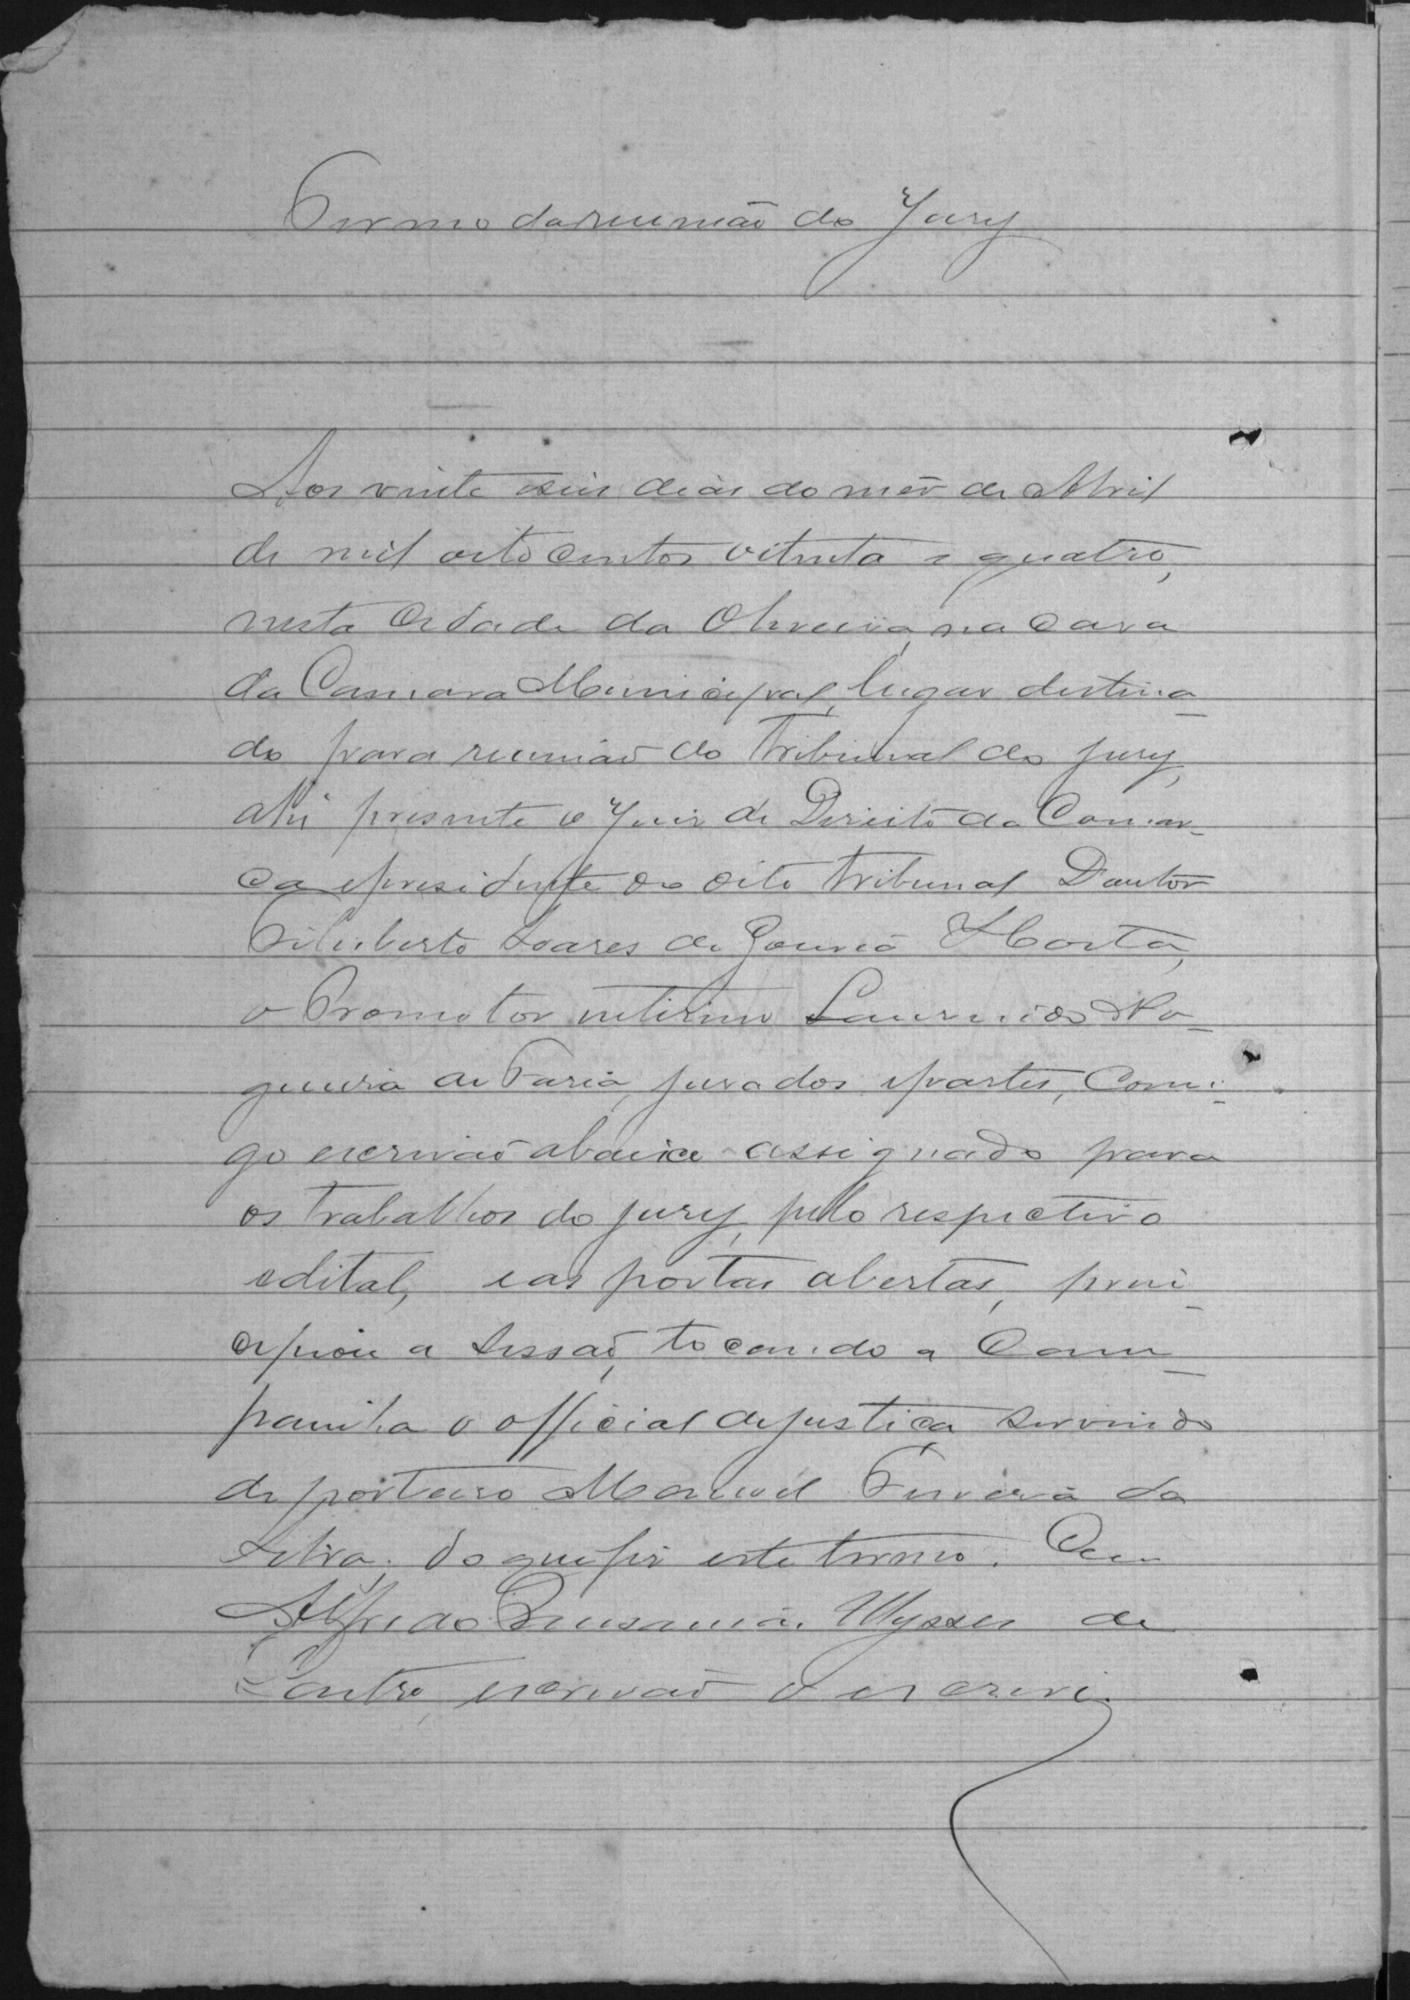 Termo da reunião do Jury
Aos vinte e seis dias do mez de Abril
de mil oito centos oitenta e quatro,
nesta Cidade da Oliveira, na Casa
da Camara Municipal, lugar destina-
do para reunião do Tribunal do Jury,
ahi presente o Juiz de Direito da Comar-
ca e presidente do dito Tribunal Doutor
Filisberto Soares de Gouvêa Horta,
o Promotor interino Lourenço No-
gueira de Faria, jurados e partes, Comi-
go escrivão abaixo assignado para
os trabalhos do jury, pelo respectivo
edital, e as portas abertas, prin-
cipiou a Sessão, tocando a Cam-
painha o official de justiça servindo
de porteiro Manoel Ferreira da
Silva; do que fiz este termo. Eu
Alfredo Ulysses de
Castro, escrivão o escrevi.